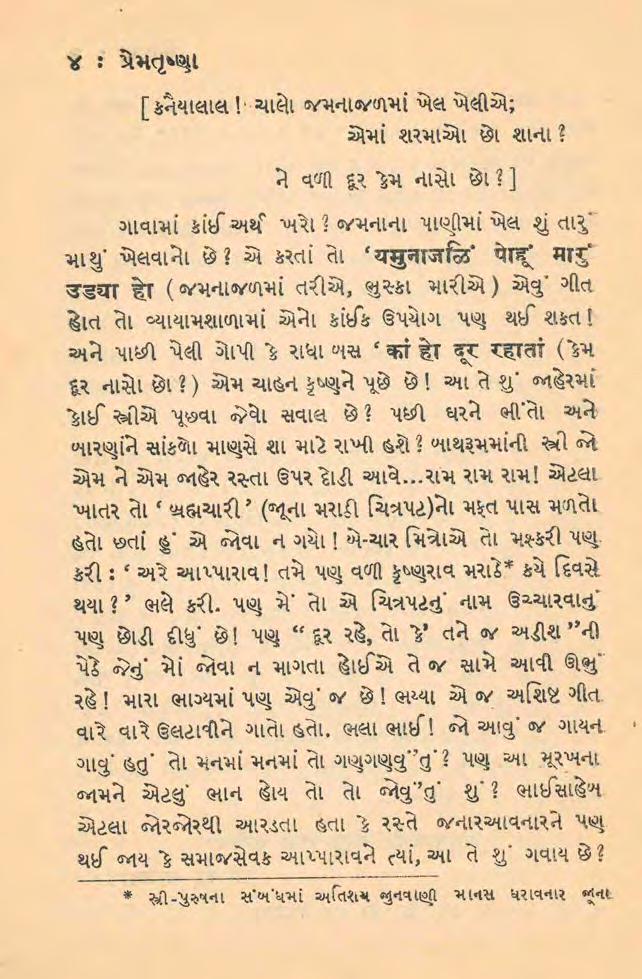 ૪ : પ્રેમતૃષ્ણા
[ કનૈયાલાલ ! ચાલો જમનાજળમાં ખેલ ખેલીએ;
એમાં શરમાઓ છો શાના ?
ને વળી દૂર કેમ નાસો છો ? ]
ગાવામાં કાંઈ અર્થ ખરો ? જમનાના પાણીમાં ખેલ શું તારું
માથું ખેલવાનો છે ? એ કરતાં તો ‘ યમુનાજળિં પોહૂં મારું
उड्या हो ( જમનાજળમાં તરીએ, ભુસ્કા મારીએ ) એવું ગીત
હોત તો વ્યાયામશાળામાં એનો કાંઈક ઉપયોગ પણ થઈ શકત !
અને પાછી પેલી ગોપી કે રાધા બસ ‘ कां हो दूर रहातां ( કેમ
દૂર નાસો છો ? ) એમ ચાહન કૃષ્ણને પૂછે છે ! આ તે શું જાહેરમાં
કોઈ સ્ત્રીએ પૂછવા જેવો સવાલ છે ? પછી ઘરને ભીંતો અને
બારણાંને સાંકળો માણસે શા માટે રાખી હશે ? બાથરૂમમાંની સ્ત્રી જો
એમ ને એમ જાહેર રસ્તા ઉપર દોડી આવે...રામ રામ રામ! એટલા
ખાતર તો ‘ બ્રહ્મચારી ’ (જૂના મરાઠી ચિત્રપટ)નો મફત પાસ મળતો
હતો છતાં હું એ જોવા ન ગયો ! બે-ચાર મિત્રોએ તો મશ્કરી પણ
કરી : ‘ અરે આપ્પારાવ! તમે પણ વળી કૃષ્ણરાવ મરાઠે* કયે દિવસે
થયા ? ’ ભલે કરી. પણ મેં તો એ ચિત્રપટનું નામ ઉચ્ચારવાનું
પણ છોડી દીધું છે! પણ “ દૂર રહે, તો કે’ તને જ અડીશ ”ની
પેઠે જેનું મોં જોવા ન માગતા હોઈએ તે જ સામે આવી ઊભું
રહે ! મારા ભાગ્યમાં પણ એવું જ છે ! ભય્યા એ જ અશિષ્ટ ગીત
વારે વારે ઉલટાવીને ગાતો હતો. ભલા ભાઈ ! જો આવું જ ગાયન
ગાવું હતું તો મનમાં મનમાં તો ગણગણવું’તું ? પણ આ મૂરખના
જામને એટલું ભાન હોય તો તો જોવું’તું શું ? ભાઈસાહેબ
એટલા જોરજોરથી આરડતા હતા કે રસ્તે જનારઆવનારને પણ
થઈ જાય કે સમાજસેવક આપ્પારાવને ત્યાં, આ તે શું ગવાય છે ?
* સ્ત્રી-પુરુષના સંબંધમાં અતિશય જુનવાણી માનસ ધરાવનાર જૂના